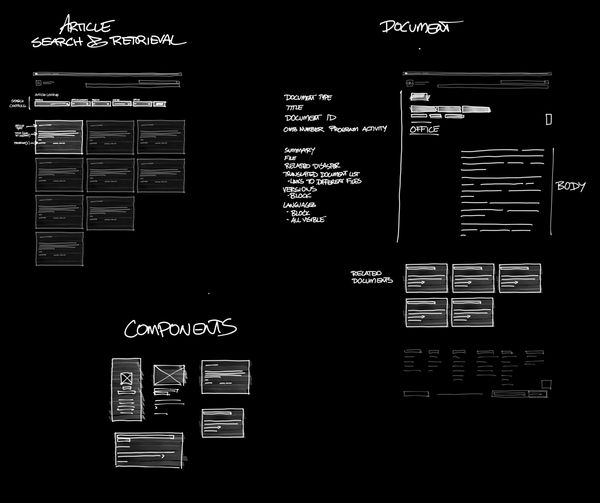 ARTICLE
SEARCH & RETRIEVAL
SEARCH
CONTROLS
DOCUMENT
DOCUMENT TYPE
TITLE
DOCUMENT ID
OMB NUMBER PROGRAM ACTIVITY
SUMMARY
FILE
RELATED DISASTER
TRANSLATED DOCUMENT LIST
- LINKS TO DIFFERENT FILES
VERSIONS
- BLOCK
LANGUAGES
- BLOCK
- ALL VISIBLE
OFFICE
BODY
RELATED
DOCUMENTS
COMPONENTS